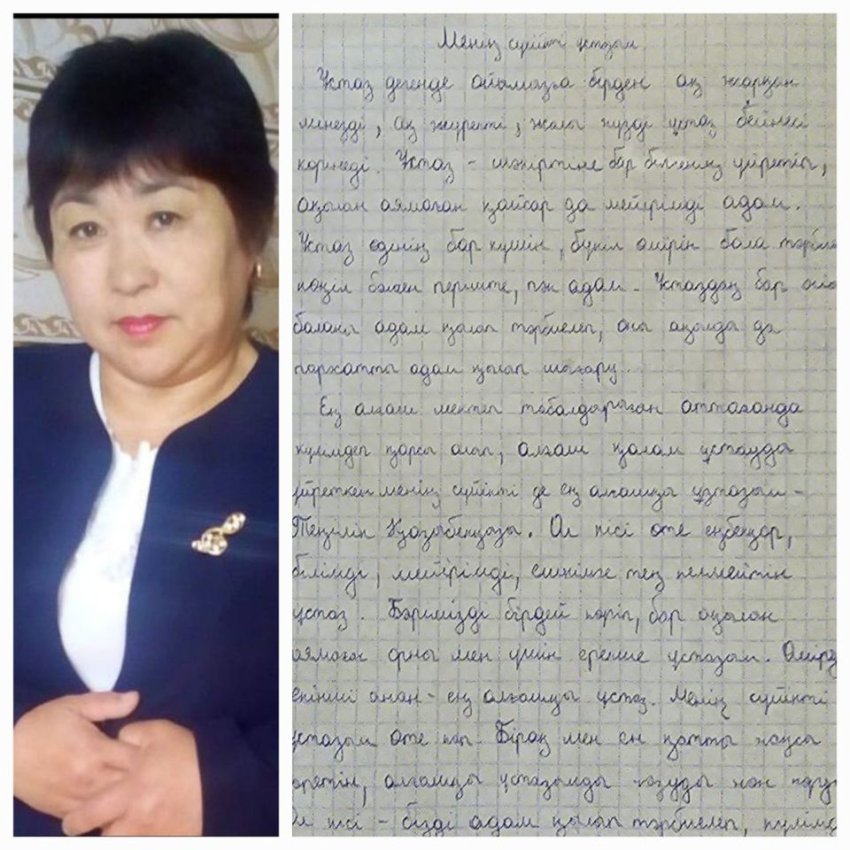 Менің сүйікті ұстазым
Ұстаз дегенде ойымызға бірден ақ жарқын
мінезді, ақ жүректі, жылы жүзді ұстаз бейнесі
көрінеді. Ұстаз - шәкіртіне бар білгенін үйретіп,
ақылын аямаған қайсар да мейірімді адам.
Ұстаз өзінің бар күшін, бүкіл өмірін бала
көңіл бөлген періште, пәк адам - Ұстаздың бар
баланы адам қылып тәрбиелеп, оны ақылды да
парасатты адам қылып шығару.
Ең алғаш мектеп табалдырығын аттағанда
күлімдеп қарсы алып, алғаш қалам ұстауды
үйреткен менің сүйікті де ең алғашқы ұстазым -
Теңгілік Қазыбекқызы. Ол кісі өте еңбекқор,
білімді, мейірімді, ешкімге тең келмейтін
ұстаз. Бәрімізді бірдей көріп, бар ақылын
аямаған орны мен үшін ерекше ұстазым.
екінші анам - ең алғашқы ұстаз. Менің сүйікті
ұстазым өте көп. Бірақ мен ең қатты жақсы
көретін, алғашқы ұстазымды жазуды жөн
Ол кісі - бізді адам қылып тәрбиелеп,